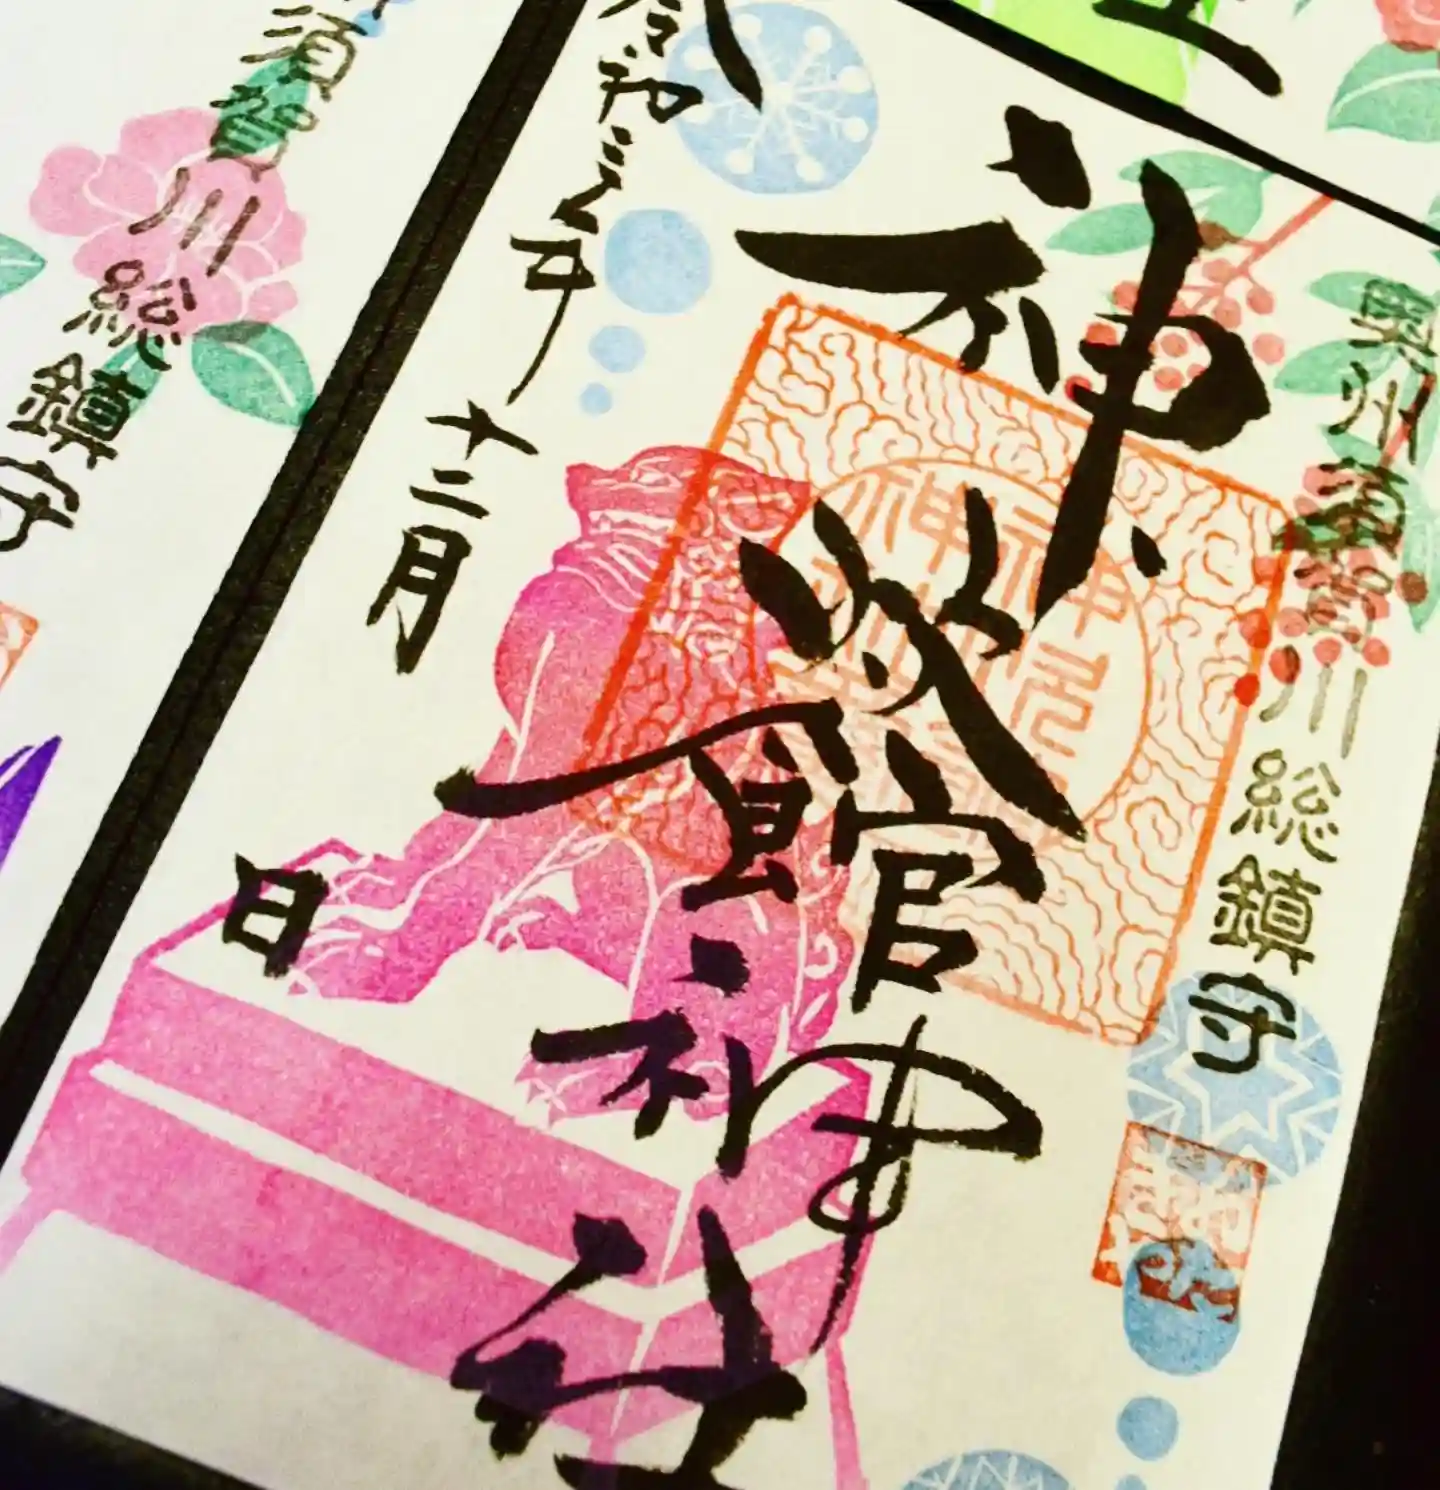 奥州須賀川総鎮守
神炊館神社
令和三年十二月
日
須賀川総鎮守